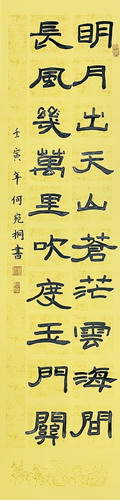 明月出天山蒼茫雲海間
長風幾萬里吹度玉門關
壬寅年何宛桐書